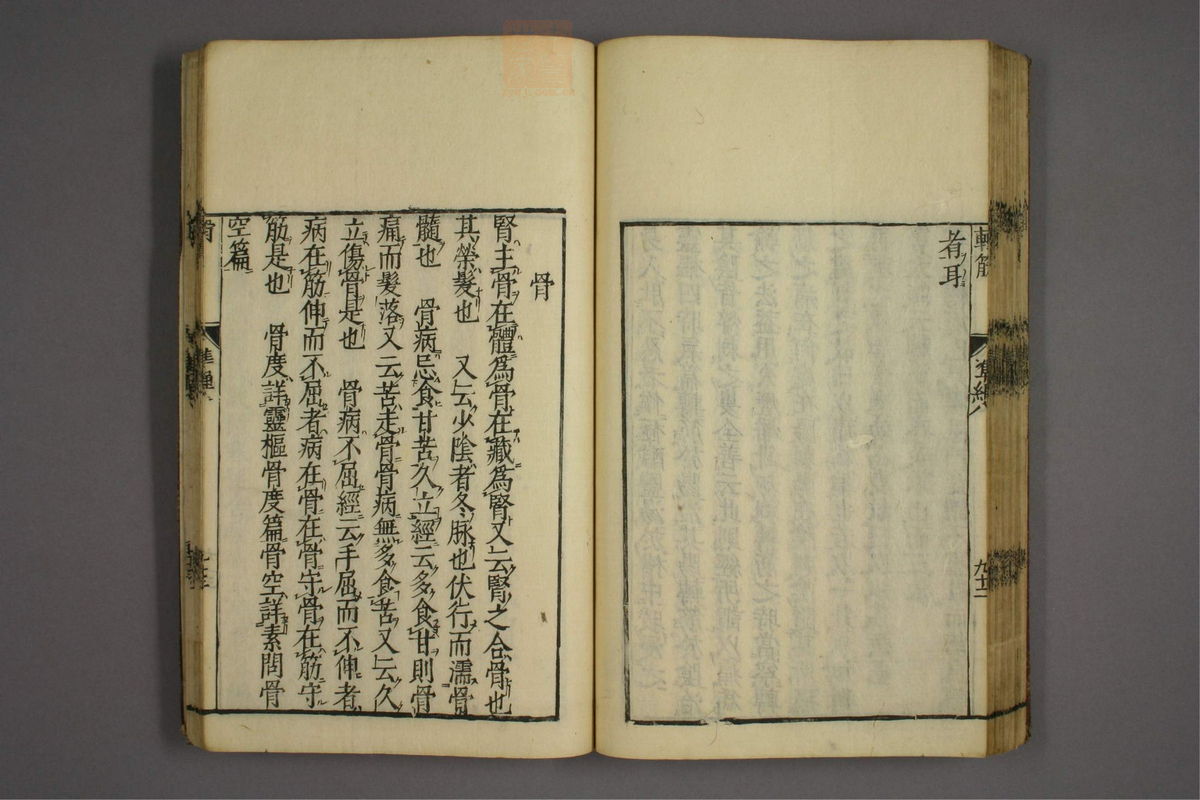 者耳
轉筋
九十二
骨
腎主骨在體爲骨在藏爲腎又云腎之合骨也
其榮髮也　又云少陰者冬脉也伏行而濡骨
髓也　骨病忌食甘苦久立經云多食甘則骨
痛而髮落又云苦走骨骨病無多食苦又云久
立傷骨是也　骨病不屈經云手屈而不伸者
病在筋伸而不屈者病在骨在骨守骨在筋守
筋是也　骨度詳靈樞骨度篇骨空詳素問骨
空篇
骨